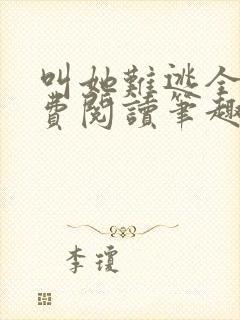 叫她難逃全
費閱讀筆趣
李瓊